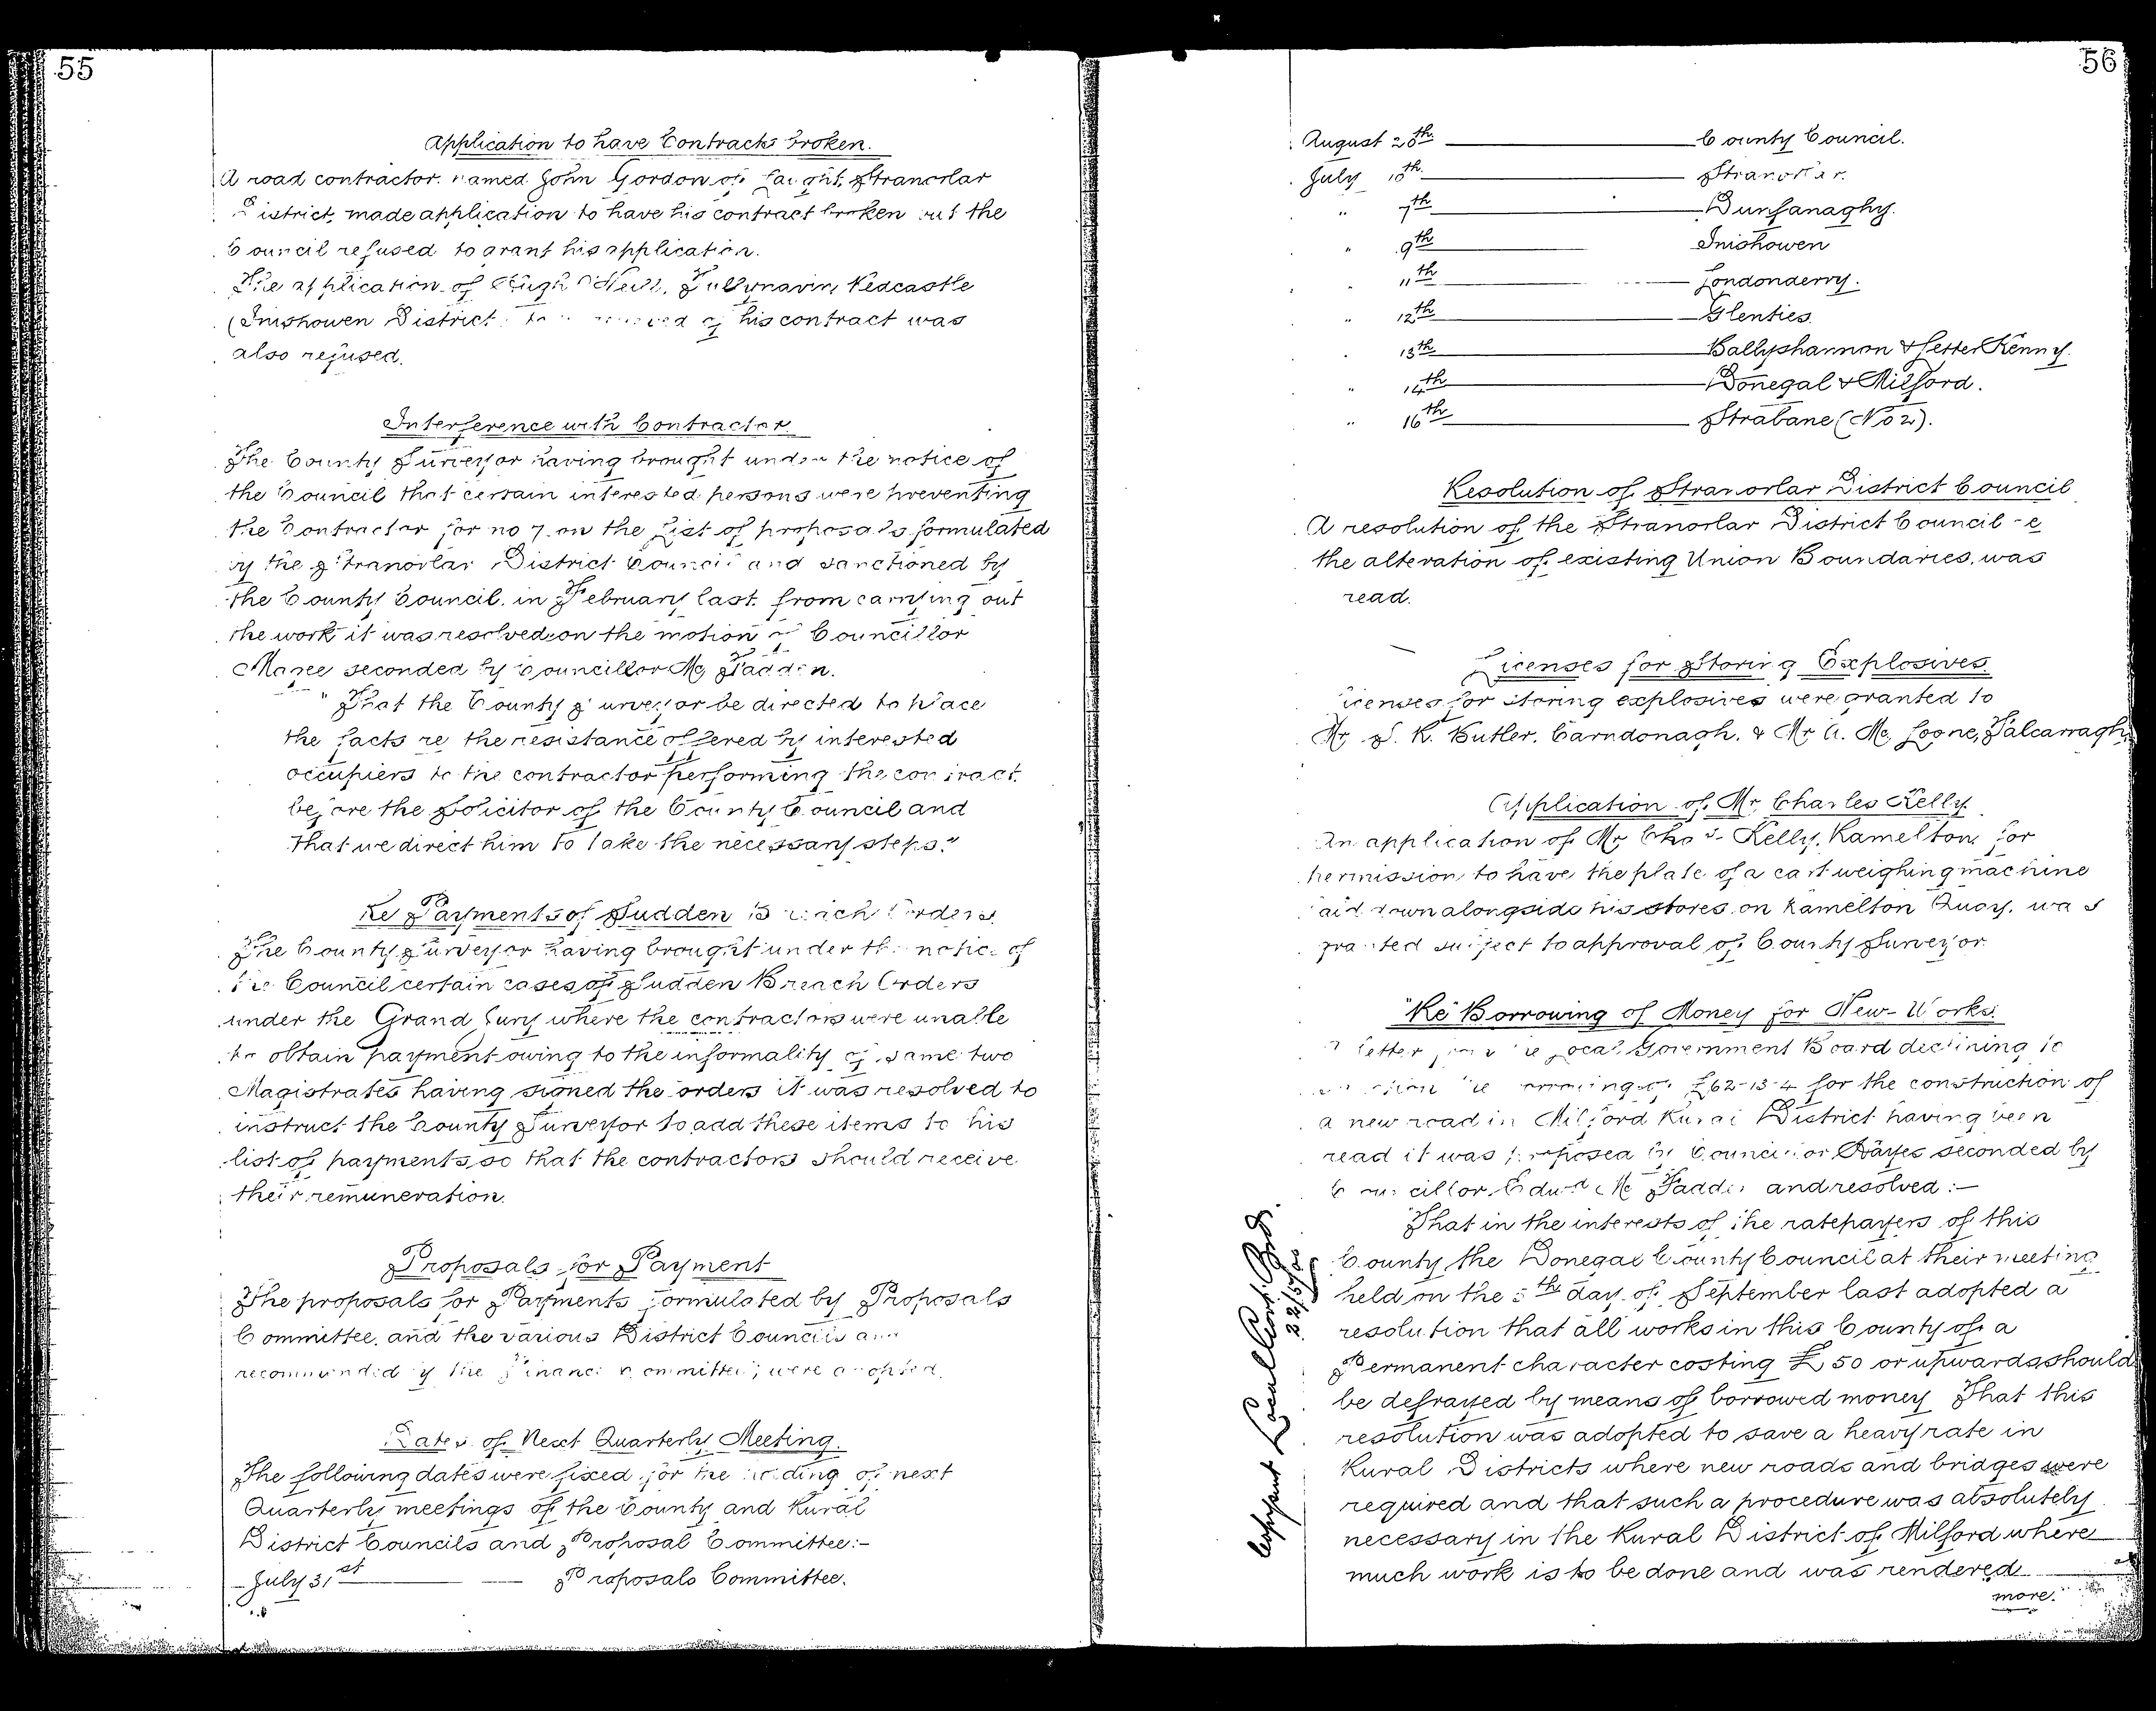 55
Application to have Contracts broken.
A road contractor named John Gordon of Stranorlar
District, made application to have his contract broken but the
Council refused to grant his application.
The application of Hugh O'Neill, Tullynavin, Redcastle
(Inishowen District to be relieved of his contract was
also refused.
Interference with Contractor.
The County Surveyor having brought under the notice of
the Council that certain interested persons were preventing
the Contractor for no 7 on the List of proposals formulated
by the Stranorlar District Council and sanctioned by
the County Council in February last from carrying out
the work, it was resolved on the motion of Councillor
Magee seconded by Councillor Mc Fadden.
"That the County Surveyor be directed to place
the facts re the resistance offered by interested
occupiers to the contractor performing the contract
before the Solicitor of the County Council and
that we direct him to take the necessary steps."
Re Payments of Sudden Breach Orders
The County Surveyor having brought under the notice of
the Council certain cases of Sudden Breach Orders
under the Grand Jury where the contractors were unable
to obtain payment owing to the informality of some two
Magistrates having signed the orders it was resolved to
instruct the County Surveyor to add these items to his
list of payments so that the contractors should receive
their remuneration.
Proposals for Payment
The proposals for Payments formulated by Proposals
Committee, and the various District Councils and
recommended by the Finance Committee, were adopted.
Dates of Next Quarterly Meeting.
The following dates were fixed for the holding of next
Quarterly meetings of the County and Rural
District Councils and Proposal Committee:-
July 31st Proposals Committee.
56
August 28th County Council.
July 10th Stranorlar.
" 7th Dunfanaghy.
" 9th Inishowen
" 11th Londonderry.
" 12th Glenties
" 13th Ballyshannon & Letter Kenny.
" 14th Donegal & Milford.
" 16th Strabane (No 2).
Resolution of Stranorlar District Council
A resolution of the Stranorlar District Council re
the alteration of existing Union Boundaries, was
read.
Licenses for Storing Explosives.
Licenses for storing explosives were granted to
Mr S. K. Butler, Carndonagh. & Mr A. Mc Loone, Falcarragh.
Application of Mr Charles Kelly.
An application of Mr Chas Kelly, Ramelton for
permission to have the plate of a cart weighing machine
laid down alongside his stores on Ramelton Quay, was
granted subject to approval of County Surveyor.
"Re" Borrowing of Money for New-Works.
A letter from the Local Government Board declining to
sanction the borrowing of £62-13-4 for the construction of
a new road in Milford Rural District having been
read it was proposed by Councillor Hayes seconded by
Councillor Edwd Mc Fadden and resolved:-
That in the interests of the ratepayers of this
County the Donegal County Council at their meeting
held on the 5th day of September last adopted a
resolution that all works in this County of a
Permanent character costing £50 or upwards should
be defrayed by means of borrowed money That this
resolution was adopted to save a heavy rate in
Rural Districts where new roads and bridges were
required and that such a procedure was absolutely
necessary in the Rural District of Milford where
much work is to be done and was rendered
more.
Copy sent Local Govt Bd.